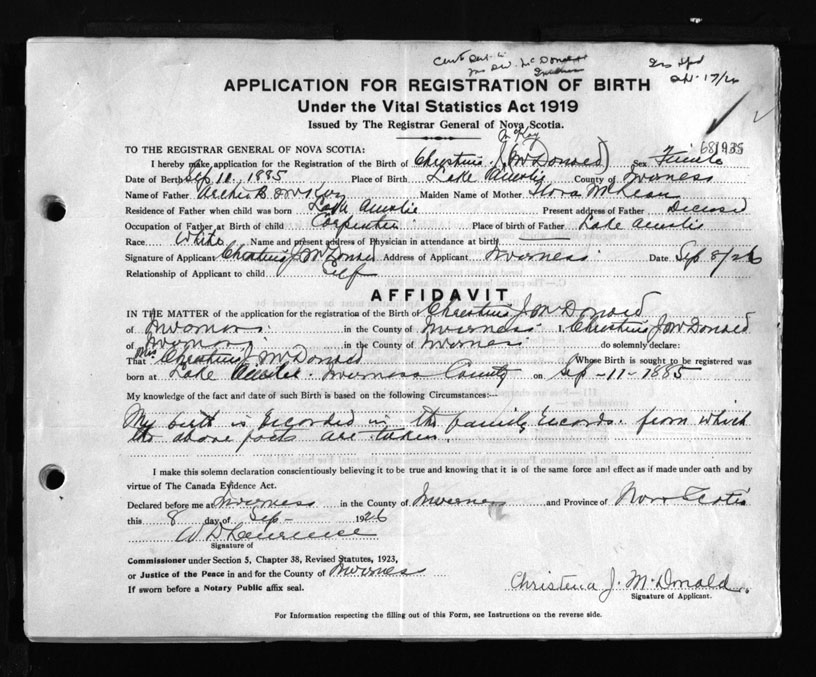 Cert Sent to
Mrs D.W. McDonald
17/26
APPLICATION FOR REGISTRATION OF BIRTH
Under the Vital Statistics Act 1919
Issued by The Registrar General of Nova Scotia.
McKay
TO THE REGISTRAR GENERAL OF NOVA SCOTIA: 681935
I hereby make application for the Registration of the Birth of Christina J (McDonald) Sex Female
Date of Birth Sep 11, 1885 Place of Birth Lake Ainslie County of Inverness
Name of Father Archie B McKay Maiden Name of Mother Flora McLean
Residence of Father when child was born Lake Ainslie Present address of Father Deceased
Occupation of Father at Birth of child Carpenter Place of birth of Father Lake Ainslie
Race White Name and present address of Physician in attendance at birth
Signature of Applicant Christina J McDonald Address of Applicant Inverness Date Sep 8/26
Relationship of Applicant to child Self
AFFIDAVIT
IN THE MATTER of the application for the registration of the Birth of Christina J McDonald
of Inverness in the County of Inverness I, Christina J McDonald
of Inverness in the County of Inverness do solemnly declare:
That Mrs Christina J McDonald Whose Birth is sought to be registered was
born at Lake Ainslie. Inverness County on Sep-11-1885
My knowledge of the fact and date of such Birth is based on the following Circumstances:—
My birth is recorded in the family records. from which
the above facts are taken.
I make this solemn declaration conscientiously believing it to be true and knowing that it is of the same force and effect as if made under oath and by
virtue of The Canada Evidence Act.
Declared before me at Inverness in the County of Inverness and Province of Nova Scotia
this 8 day of Sep- 1926
W D Lawrence
Signature of
Commissioner under Section 5, Chapter 38, Revised Statutes, 1923,
or Justice of the Peace in and for the County of Inverness
If sworn before a Notary Public affix seal.
Christina J. McDonald.
Signature of Applicant.
For Information respecting the filling out of this Form, see Instructions on the reverse side.